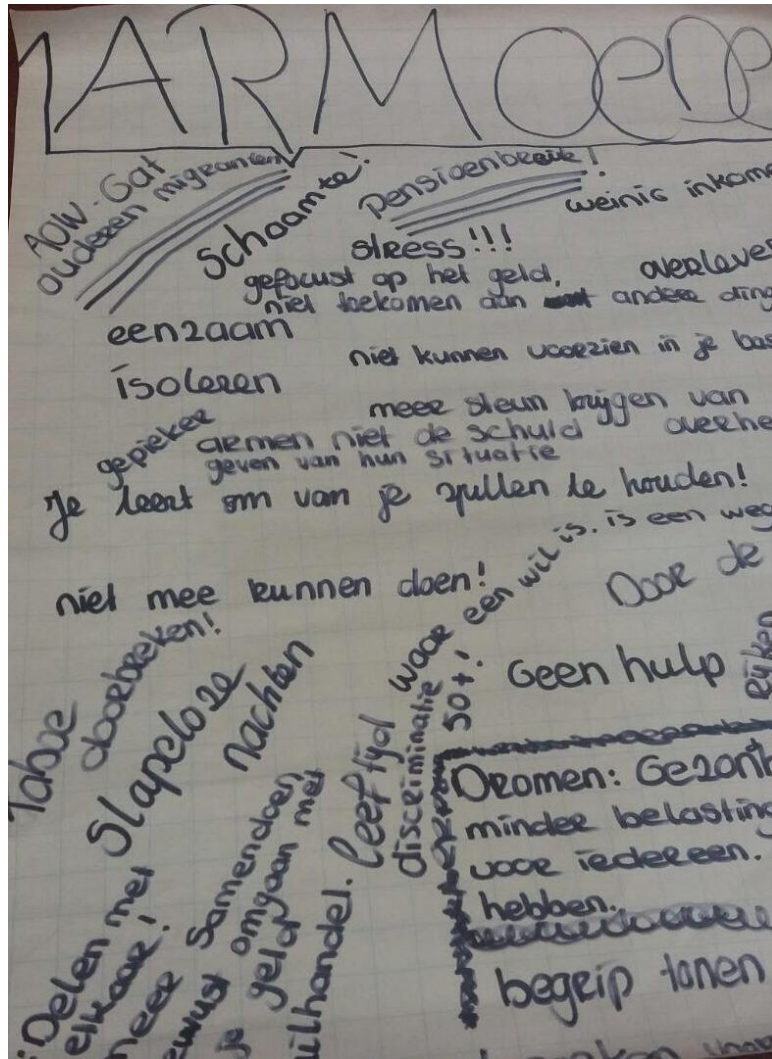 ARMOEDE
AOW-Gat
ouderen migranten
Schaamte!
pensioenbreuk!
weinig inkome
stress!!!
gefocust op het geld,
niet toekomen aan andere ding
overleven
eenzaam
isoleren
niet kunnen voorzien in je bas
gepieker
meer steun krijgen van
overhe
armen niet de schuld
geven van hun situatie
Je leert om van je spullen te houden!
niet mee kunnen doen!
waar een wil is, is een weg
Door de
Taboe
doorbreken!
Slapeloze
nachten
Geen hulp
leeftijd
discriminatie
50+!
Dromen: Gezonth
minder belasting
voor iedereen.
hebben.
begrip tonen
Delen met
elkaar!
meer Samendoen
ewust omgaan met
je geld
uilhandel.